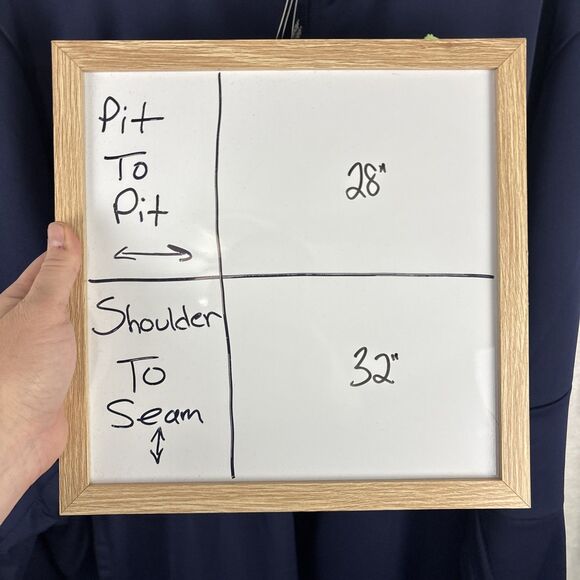 Pit
To
Pit
28"
Shoulder
To
Seam
32"